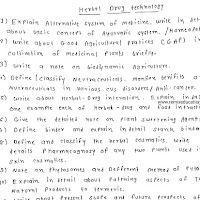 Herbal Drug technology
1) Explain Alternative system of medicine. Write in det
about basic concept of Ayurvedic system. /Homeopath
2) Write about Good Agricultural practices (GAP) in
cultivation of medicinal plants briefly.
3) Write a note on biodynamic Agriculture.
Define / classify Neutraceuticals. Mention benifits of
Neutraceuticals in various CVS disorders / Anti-cancer
Write about Herbal-Drug interaction. Explain in det
one example each of Herbal-drug and food interacti
Give the detailed note on plant screening Agents
Define binder and explain in detail starch binder
Define and classify the herbal cosmetics. Write
details Pharmacognosy of any two plants used in
Skin cosmetics.
Note on Phytosomes and Different method of
Explain in detail about Patenting aspects of
Natural Products to
Write about Present scope and future prospects of